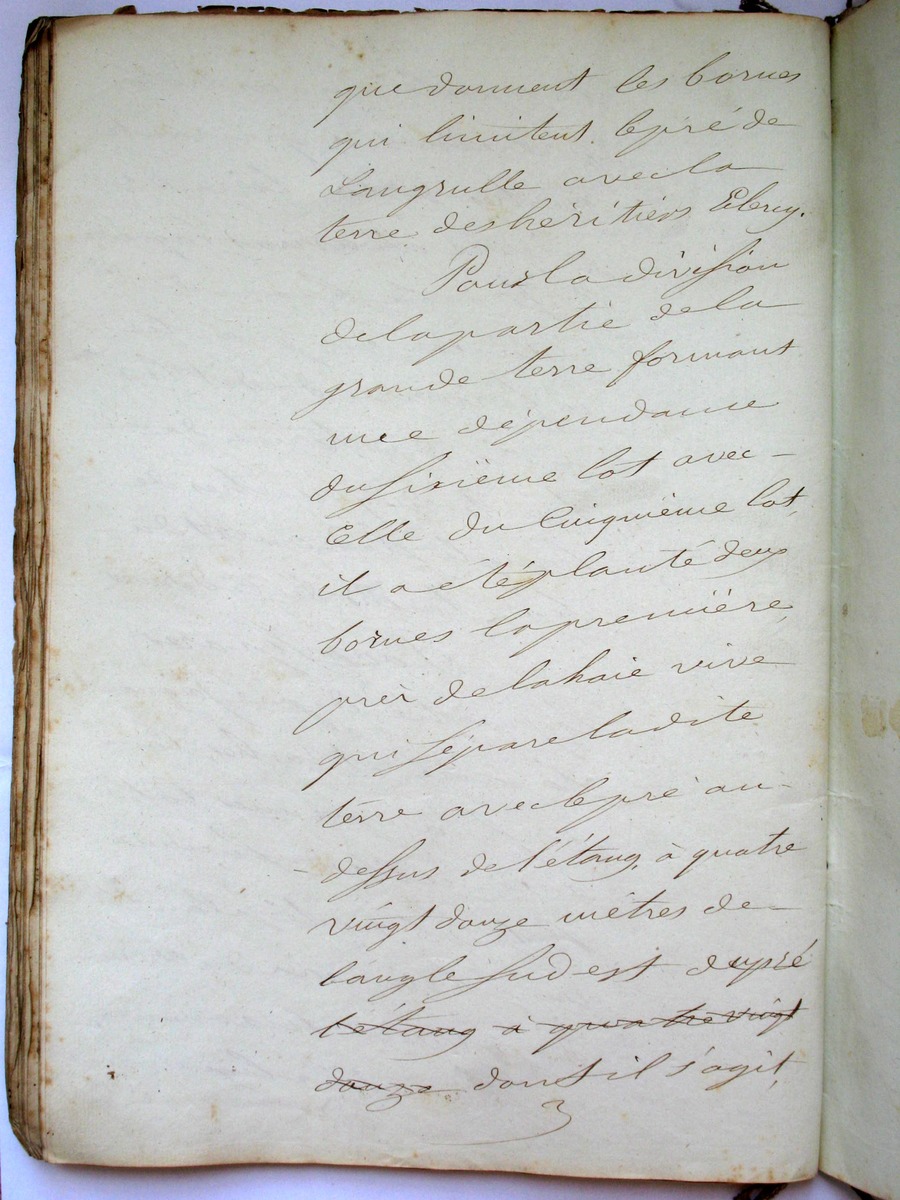 que donnent les bornes
qui limitent le pré de
Langrulle avec la
terre des héritiers
Pour la division
de la partie de la
grande terre formant
une dépendance
du sixième lot avec
Celle du Cinquième lot,
il a été planté deux
bornes la première,
près de la haie vive
qui sépare ladite
terre avec le pré au-
dessus de l'étang, à quatre
vingt douze mètres de
l'angle sud est du pré
l'étang à quatre vingt
douze dont il s'agit,